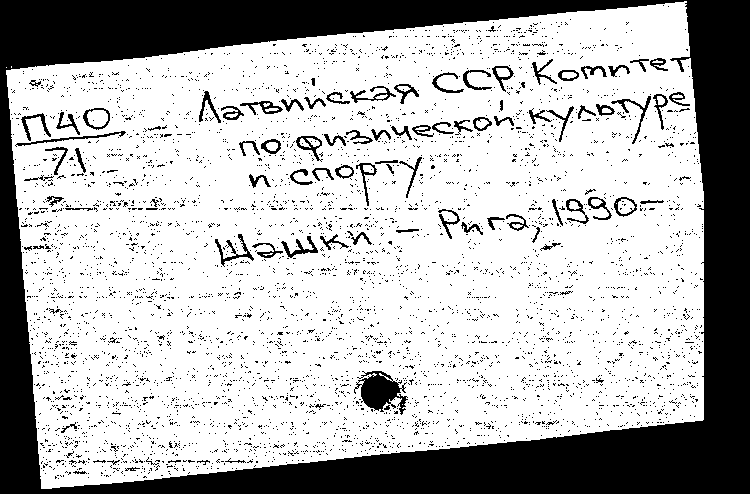 П40
71
Латвийская ССР. Комитет
по физической культуре
и спорту.
Шашки. – Рига, 1990–